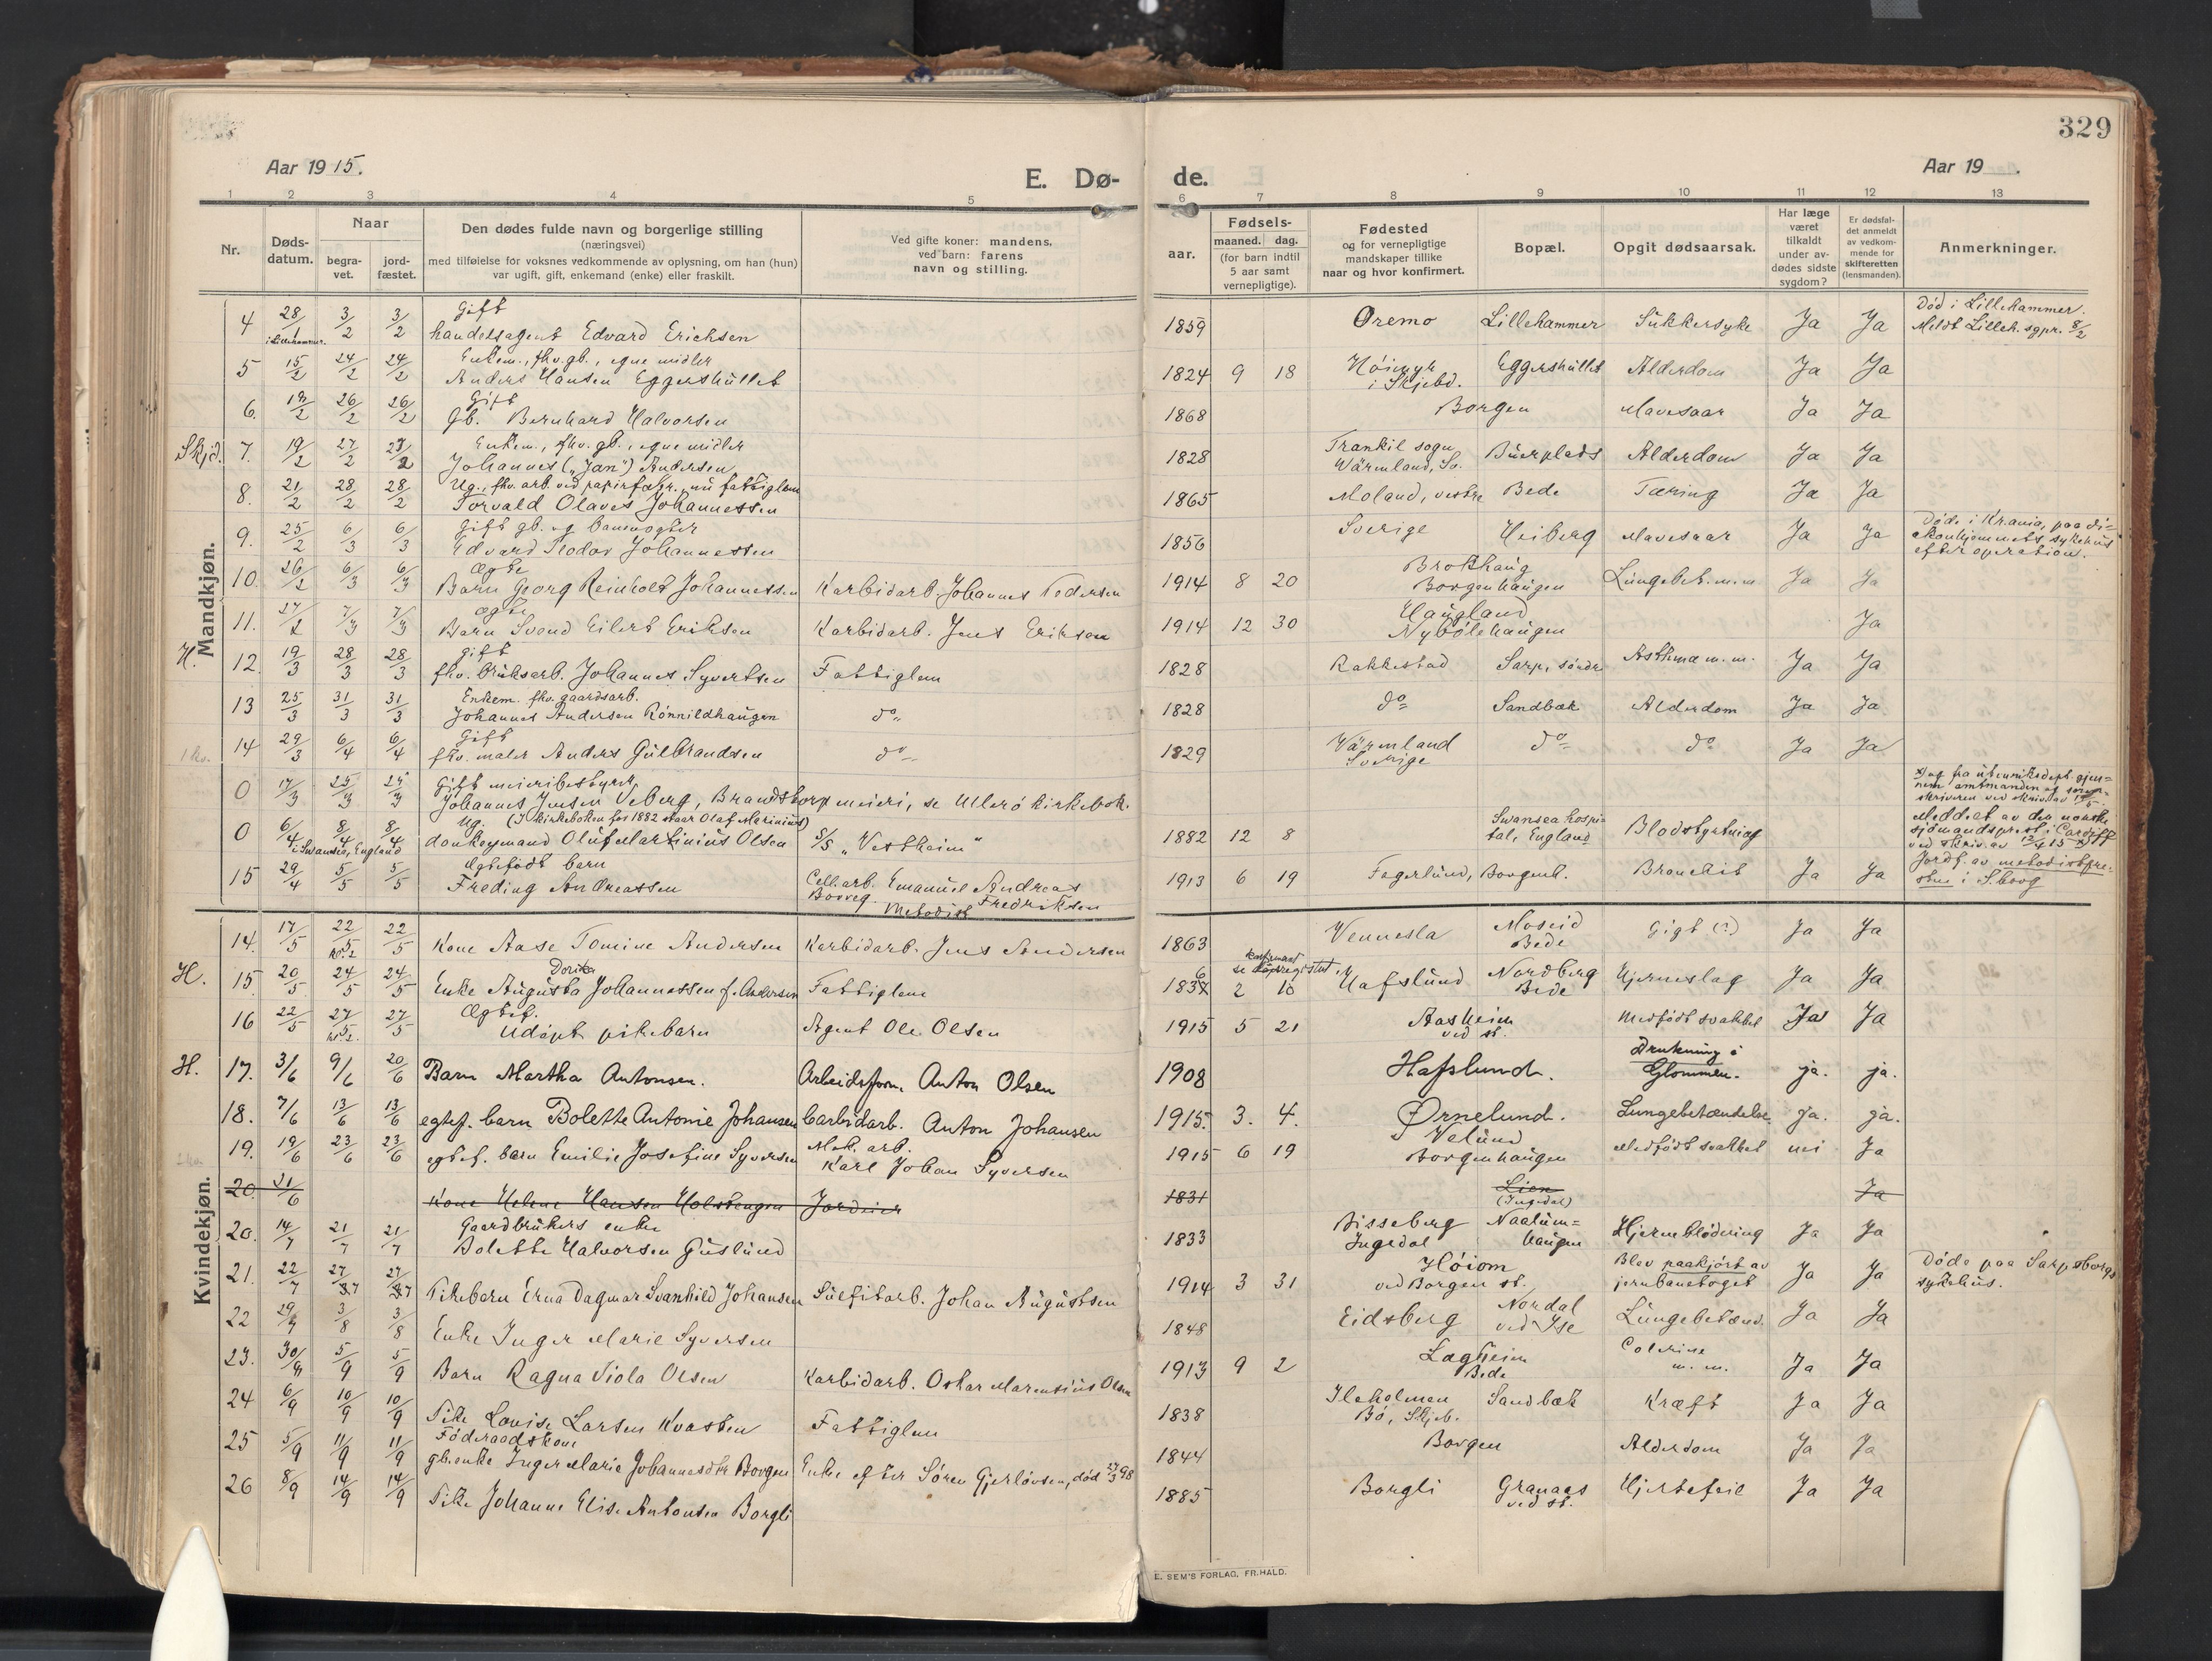 329
Aar 1915.
E. Dø-
de.
Aar 19 .
1 2 3 4 5 6 7 8 9 10 11 12 13
Nr.
Døds-
datum.
Naar
begra-
vet.
jord-
fæstet.
Den dødes fulde navn og borgerlige stilling
(næringsvei)
med tilføielse for voksnes vedkommende av oplysning, om han (hun)
var ugift, gift, enkemand (enke) eller fraskilt.
Ved gifte koner: mandens,
ved barn: farens
navn og stilling.
Fødsels-
aar.
maaned. dag.
(for barn indtil
5 aar samt
vernepligtige).
Fødested
og for vernepligtige
mandskaper tillike
naar og hvor konfirmert.
Bopæl.
Opgit dødsaarsak.
Har læge
været
tilkaldt
under av-
dødes sidste
sygdom?
Er dødsfal-
det anmeldt
av vedkom-
mende for
skifteretten
(lensmanden).
Anmerkninger.
Mandkjøn.
Gift Død i Lillehammer.
4 28/1 3/2 3/2 handelsagent Edvard Erichsen 1859 Oremo Lillehammer Sukkersyke Ja Ja Meldt Lilleh. sgpr. 8/2
i Lillehammer.
Enkem., fhv. gb., egne midler
5 15/2 24/2 24/2 Anders Hansen Eggershullet 1824 9 18 Höimyr i Skjebd. Eggershullet Alderdom Ja Ja
Gift
6. 19/2 26/2 26/2 Gb. Bernhard Halvorsen 1868 Borgen Mavesaar Ja Ja
Enkem., fhv. gb., egne midler
Skjd. 7. 19/2 27/2 27/2 Johannes („Jan") Andersen 1828 Trankil sogn Wärmland, Sv. Buerplads Alderdom Ja Ja
Ug., fhv. arb. ved papirfabr., nu fattiglem
8. 21/2 28/2 28/2 Torvald Olaves Johannessen 1865 Moland, vestre Bede Tæring Ja Ja
Gift gb. og banevogter
9. 25/2 6/3 6/3 Edvard Teodor Johannessen 1856 Sverige Heiberg Mavesaar Ja Ja Døde i Kr.ania, paa di-
akonhjemmets sykehus
efter operation.
Ægte
10. 26/2 6/3 6/3 Barn Georg Reinholt Johannessen Karbidarb. Johannes Pedersen 1914 8 20 Brotthaug Borgenhaugen Lungebet. m.m Ja Ja
Ægte
11. 27/2 7/3 7/3 Barn Svend Eilert Eriksen Karbidarb. Jens Eriksen 1914 12 30 Haugland Nybölehaugen Ja
Gift
H. 12. 19/3 28/3 28/3 fhv. bruksarb. Johannes Syvertsen Fattiglem 1828 Rakkestad Sarp, söndre Asthma m.m. Ja Ja
Enkem. fhv. gaardsarb.
13 25/3 31/3 31/3 Johannes Andersen Rönnildhaugen do 1828 do Sandbæk Alderdom Ja Ja
Gift
14 29/3 6/4 6/4 fhv. maler Anders Gulbrandsen do 1829 Värmland Sverige do do Ja Ja
Gift meieribestyrer
0 17/3 25/3 25/3 Johannes Jensen Veberg, Brandstorp meieri, se Ullerö kirkebok.
Ug. (I kirkeboken for 1882 staar Olaf Marinius)
0 6/4 8/4 8/4 donkeymand Oluf Martinius Olsen S/S „Vestheim" 1882 12 8 Swansea hospi-
tal, England Blodstyrtning
i Swansea, England
Meddelt av den norske
sjømandsprest i Cardiff
ved skriv. av 12/4 15
Ægtefödt barn
15 29/4 5/5 5/5 Freding Andreassen Cell.arb. Emanuel Andreas
Borreg. Fredriksen
Metodist 1913 6 19 Fagerlund, Borgenh. Bronchit Ja Ja Jordf. av metodistpre-
sten i S.borg
Kvindekjøn.
14. 17/5 22/5 22/5 Kone Aase Tomine Andersen Karbidarb. Jens Andersen 1863 Vennesla Moseid Bede Gigt (?) Ja Ja
kl. 2
Dorika
H. 15. 20/5 24/5 24/5 Enke Augusta Johannessen f. Andersen Fattiglem 1836 2 10 Hafslund Nordberg Bede Hjerneslag Ja Ja
Ægtef.
16 22/5 27/5 27/5 Udöpt pikebarn Agent Ole Olsen 1915 5 21 Aasheim ved st. Medfödt svakhet Ja Ja
kl. 2.
H. 17. 3/6 9/6 20/6 Barn Martha Antonsen. Arbeidsform. Anton Olsen 1908 Hafslund. Drukning i Glommen. ja. ja.
18. 7/6 13/6 13/6 egtef. barn Bolette Antonie Johansen Carbidarb. Anton Johansen 1915. 3. 4. Ørnelund. Lungebetændelse. ja. ja.
19. 19/6 23/6 23/6 egtef. barn Emilie Josefine Syversen Mek. arb.
Karl Johan Syversen 1915 6 19 Velund Borgenhaugen Medfödt svakhet nei Ja
20. 21/6 Kone Helene Hansen Holstengen Jordeier 1831 Lien (Ingedal) Ja
Gaardbrukers enke
20. 14/7 21/7 21/7 Bolette Halvorsen Guslund 1833 Bisseberg Ingedal Naalum-
haugen Hjerneblödning Ja Ja
21. 22/7 27/7 27/7 Pikebarn Erna Dagmar Svanhild Johansen Sulfitarb. Johan Augustsen 1914 3 31 Höiom ved Borgen st. Blev paakjört av
jernbanetoget Ja Ja Døde paa Sarpsborgs
sykehus.
22 29/7 3/8 3/8 Enke Inger Marie Syversen 1848 Eidsberg Nordal ved Ise Lungebetænd. Ja Ja
23. 5/9 5/9 Barn Ragna Viola Olsen Karbidarb. Oskar Marensius Olsen 1913 9 2 Lagheim Bede Colerine m.m. Ja Ja
24 6/9 10/9 10/9 Pike Lovise Larsen Kvasten Fattiglem 1838 Ileholmen Bö, Skjeb. Sandbæk Kræft Ja Ja
Föderaadskone
25 5/9 11/9 11/9 gb.enke Inger Marie Johannesdtr Borgen Enke efter Sören Gjerlövsen, död 27/3 98 1844 Borgen Alderdom Ja Ja
26 8/9 14/9 14/9 Pike Johanne Elise Antonsen Borgli 1885 Borgli Granaas ved st. Hjertefeil Ja Ja
E. SEM'S FORLAG, FR.HALD.